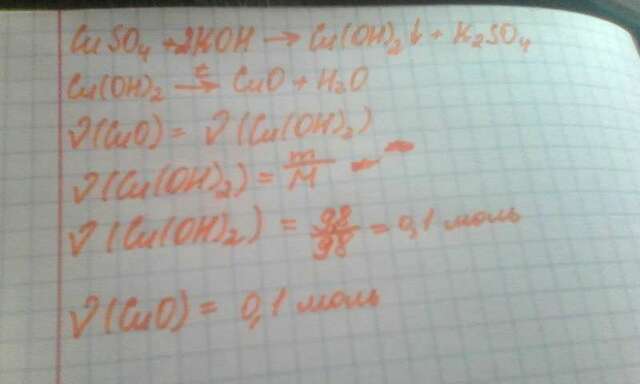 CuSO₄ + 2KOH → Cu(OH)₂↓ + K₂SO₄
Cu(OH)₂ →ᵗ CuO + H₂O
ν(CuO) = ν(Cu(OH)₂)
ν(Cu(OH)₂) = m/M
ν(Cu(OH)₂) = 9,8/98 = 0,1 моль
ν(CuO) = 0,1 моль